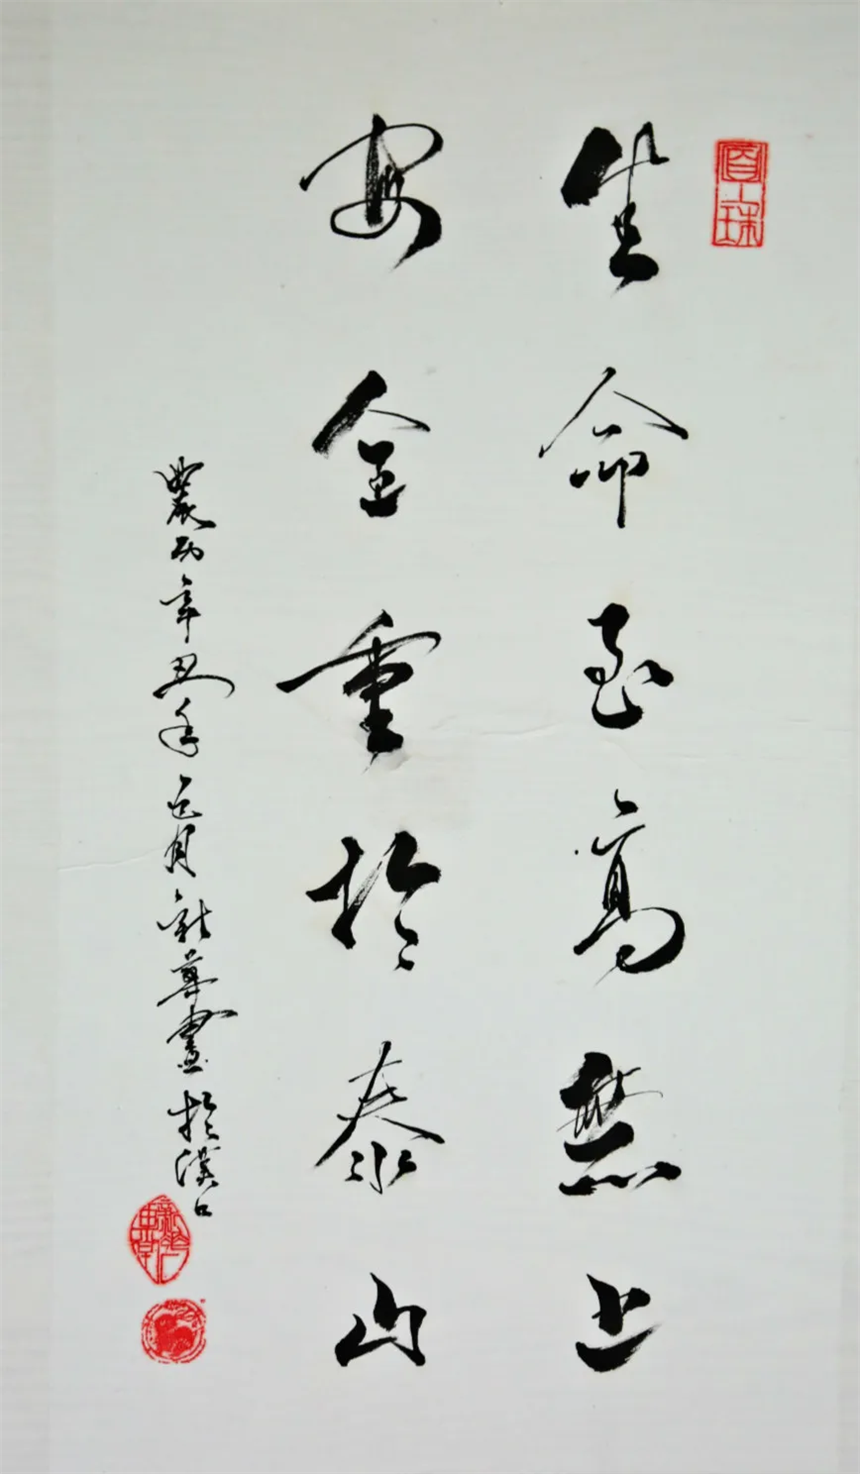 生命至高無上
安全重於泰山
農历辛丑年正月新華書於漢口